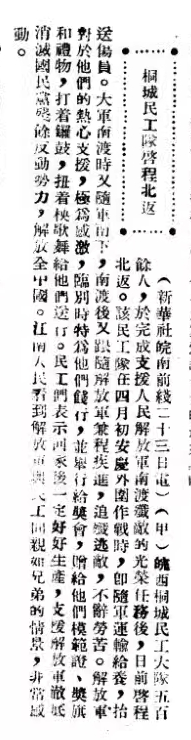 桐城民工隊啓程北返
（新華社皖南前綫二十三日電）（甲）皖西桐城民工大隊五百
餘人，於完成支援人民解放軍南渡殲敵的光榮任務後，日前啓程
北返。該民工隊在四月初安慶外圍作戰時，卽隨軍運輸給養，抬
送傷員。大軍南渡時又隨軍南下，南渡後又跟隨解放軍兼程疾進，追殲逃敵，不辭勞苦。解放軍
對於他們的熱心支援，極爲感激，臨別時特爲他們餞行，並舉行給獎會，贈給他們模範證、獎旗
和禮物，打着鑼鼓，扭着秧歌舞給他們送行。民工們表示囘家後一定好好生產，支援解放軍徹底
消滅國民黨殘餘反動勢力，解放全中國。江南人民看到解放軍與民工間親如兄弟的情景，非常感
動。